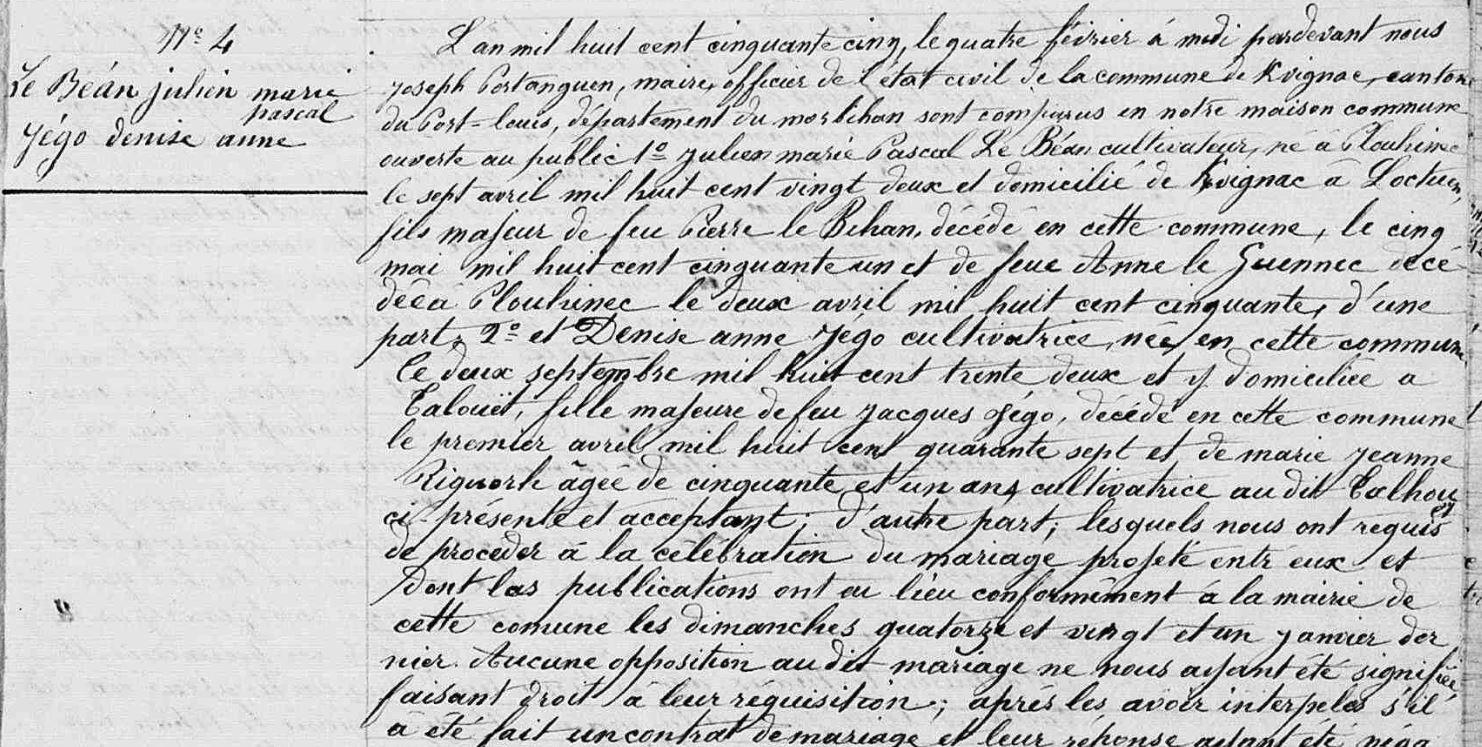 Nº 4
Le Béan julien marie
pascal
Jégo denise anne
L'an mil huit cent cinquante cinq, le quatre février à midi pardevant nous
Joseph Portanguen, maire, officier de l'état civil de la commune de Kvignac, canton
du Port-louis, département du morbihan sont comparus en notre maison commune
ouverte au public 1º Julien marie Pascal Le Béan cultivateur, né à Plouhinec
le sept avril mil huit cent vingt deux et domicilié de Kvignac à Loctuen,
fils majeur de feu Pierre le Bihan, décédé en cette commune, le cinq
mai mil huit cent cinquante un et de feue Anne le Guennec décé
dée a Plouhinec le deux avril mil huit cent cinquante, d'une
part. 2º et Denise anne Jégo cultivatrice, née en cette commune
le deux septembre mil huit cent trente deux et y domiciliée a
Talouët, fille majeure de feu Jacques Jégo, décédé en cette commune
le premier avril mil huit cent quarante sept et de marie jeanne
âgée de cinquante et un ans cultivatrice au dit Talhouet
ci-présente et acceptant; d'autre part; lesquels nous ont requis
de proceder à la célébration du mariage projeté entr eux et
dont les publications ont eu lieu conformément à la mairie de
cette comune les dimanches quatorze et vingt et un janvier der
nier. Aucune opposition au dit mariage ne nous ayant été signifiée
faisant droit à leur réquisition; après les avoir interpelés s'il
a été fait un contrat de mariage et leur réponse ayant été néga